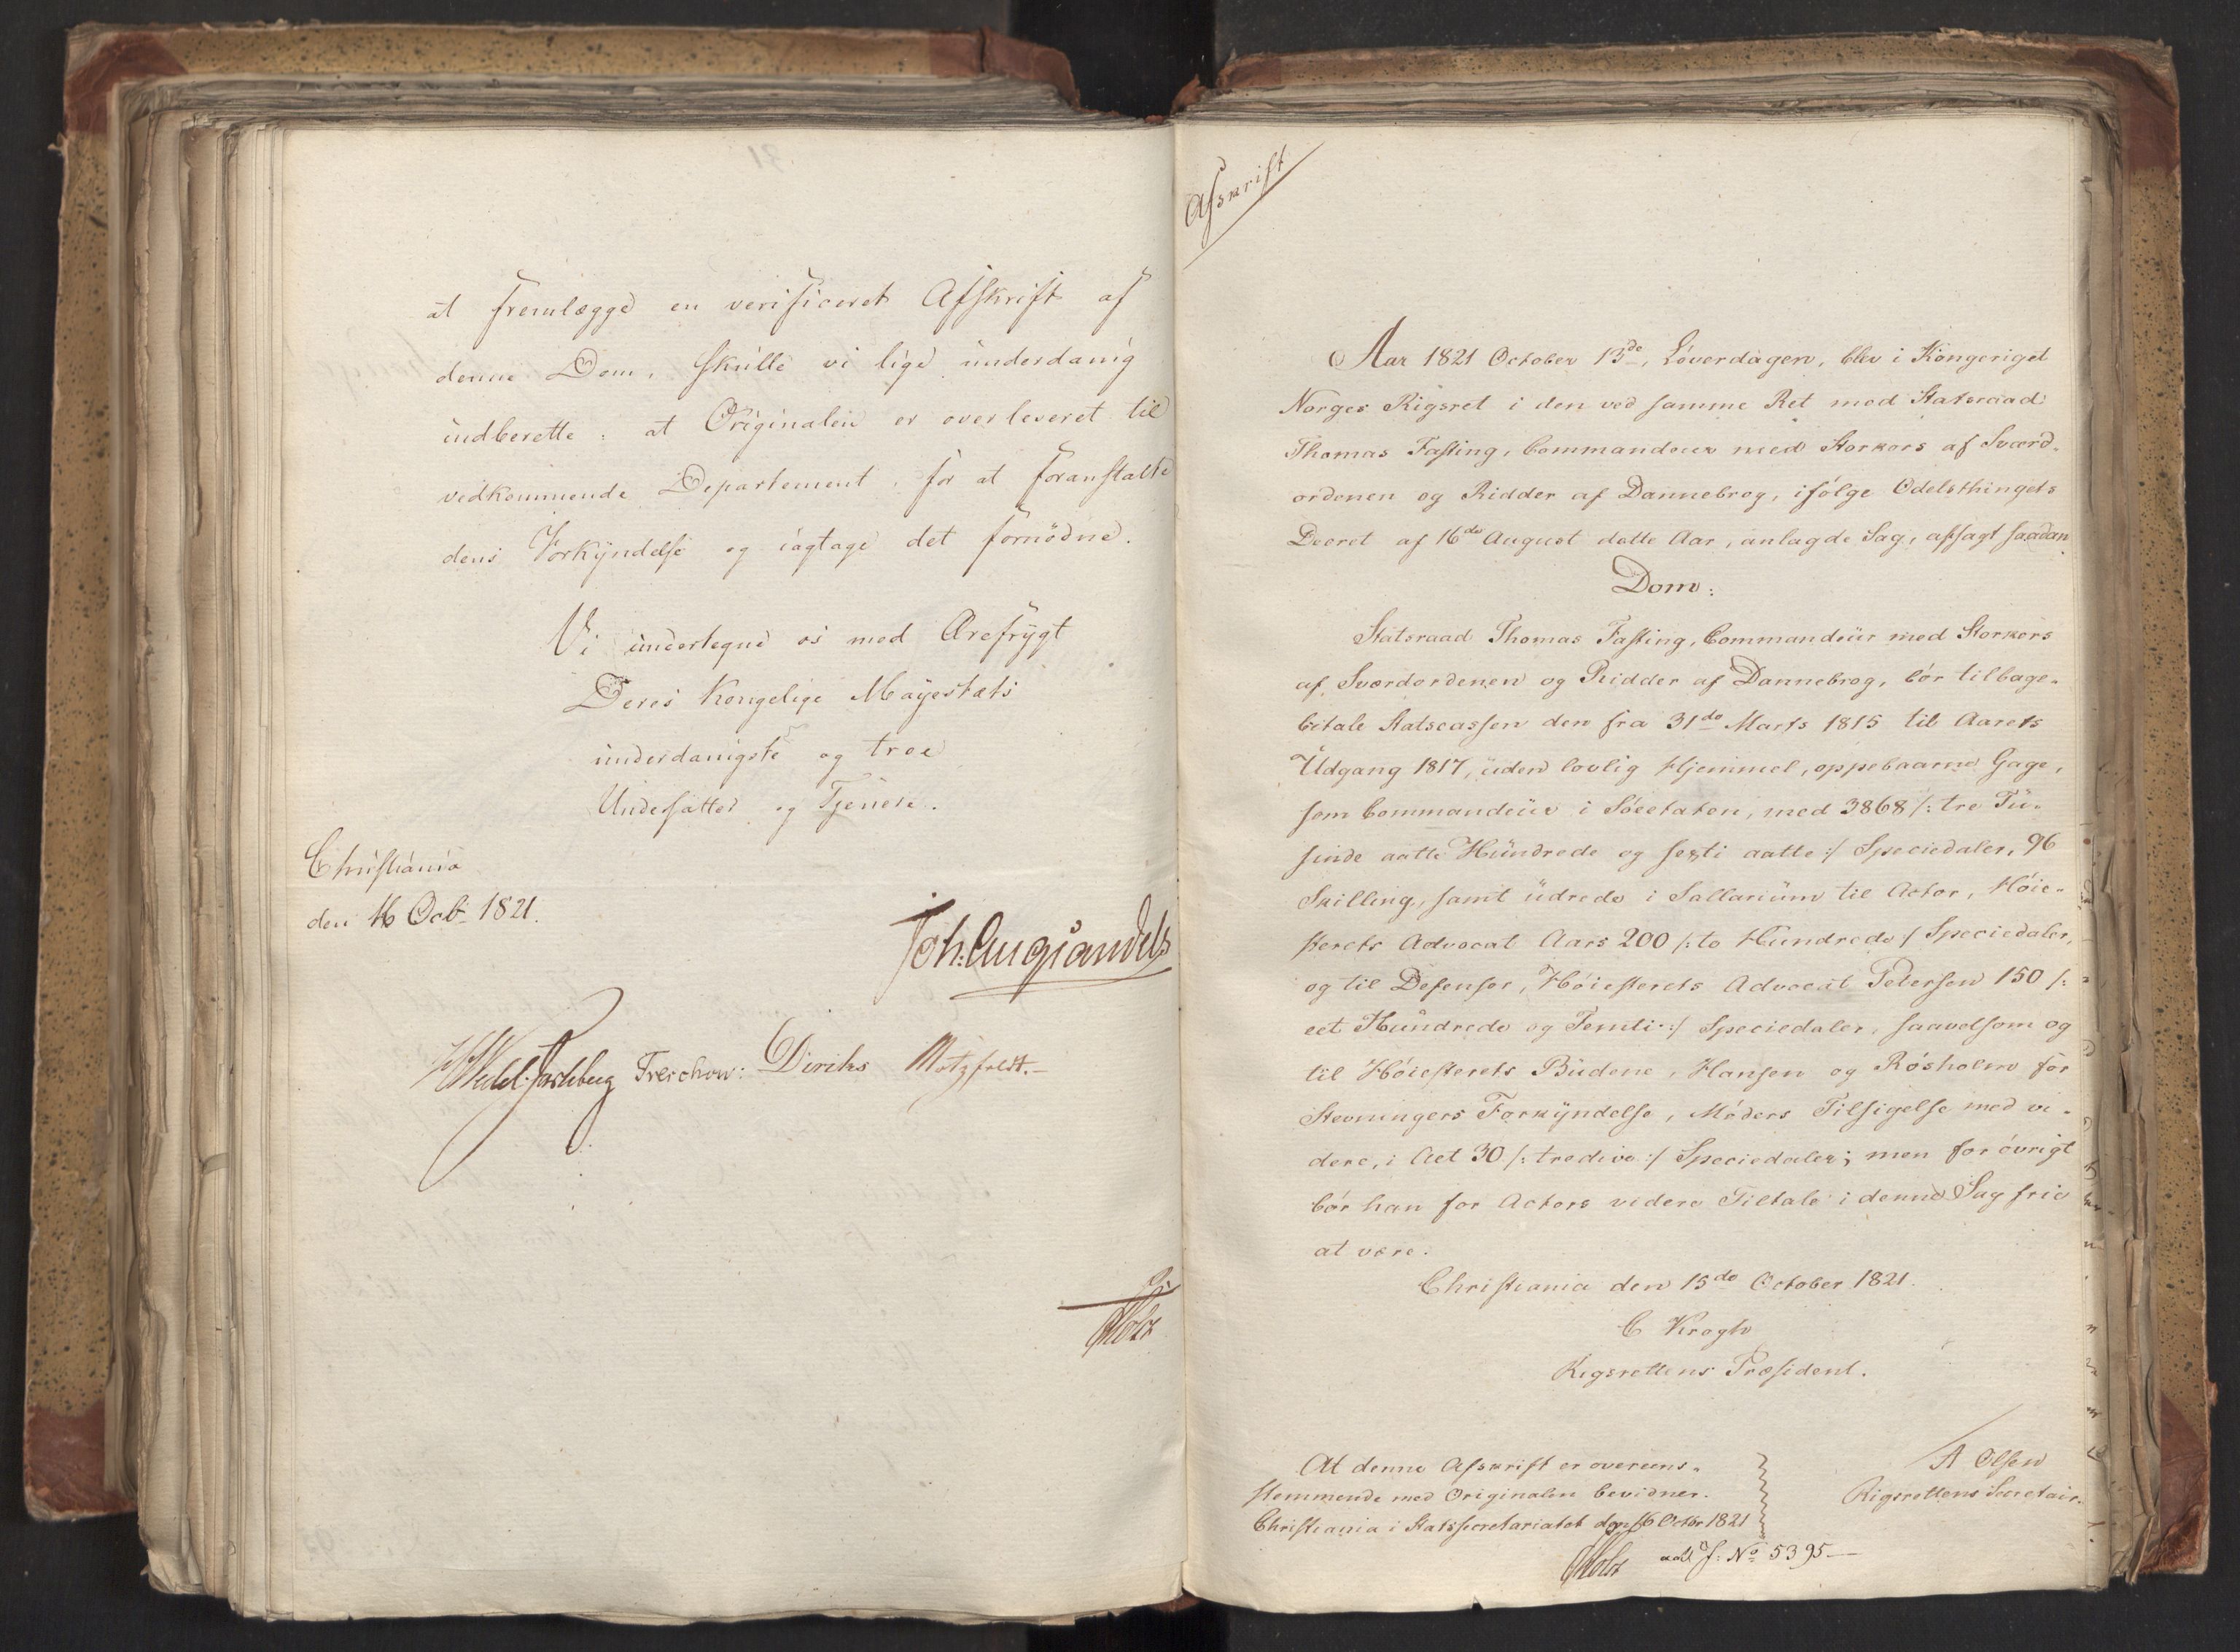 at fremlægge en verificeret Afskrift af
denne Dom, skulle vi lige underdanig
indberette: at Originalen er overleveret til
vedkommende Departement, for at foranstalte
dens Forkyndelse og iagtage det fornödne.
Vi undertegne os med Ærefrygt
Deres Kongelige Mayestæts
underdanigste og troe
Undersatter og Tjenere.
Christiania
den 16 Octb. 1821.
Joh: Aug Sandels
Treschow: Diriks Motzfeldt.
Holst
Afskrift
Aar 1821 October 13de, Löverdagen, blev i Kongeriget
Norges Rigsret i den ved samme Ret mod Statsraad
Thomas Fasting, Commandeur med Storkors af Sværd-
ordenen og Ridder af Dannebrog, ifölge Odelsthingets
Decret af 16de August dette Aar, anlagde Sag, afsagt saadan
Dom:
Statsraad Thomas Fasting, Commandeur med Storkors
af Sværdordenen og Ridder af Dannebrog, bör tilbage-
betale Statscassen den fra 31de Marts 1815 til Aarets
Udgang 1817, uden lovlig Hjemmel, oppebaarne Gage,
som Commandeur i Söeetaten, med 3868 /: tre Tu-
sinde aatte Hundrede og sexti aatte :/ Speciedaler, 96
Skilling, samt udrede i Sallarium til Actor, Höie-
sterets Advocat Aars 200 /: to Hundrede / Speciedaler,
og til Defensor, Höiesterets Advocat Petersen 150 /:
eet Hundrede og Femti :/ Speciedaler, saavelsom og
til Höiesterets Budene, Hansen og Rösholm for
Stevningers Forkyndelse, Möders Tilsigelse med vi-
dere, i Alt 30 /: tredive :/ Speciedaler; men for övrigt
bör han for Actors videre Tiltale i denne Sag frie
at være.
Christiania den 15de October 1821.
C Krogh
Rigsrettens Præsident.
At denne Afskrift er overeens-
stemmende med Originalen bevidner.
Christiania i Statssecretariatet den 16 Octbr 1821
Holst
A Olsen
Rigsrettens Secretair.
No 5395